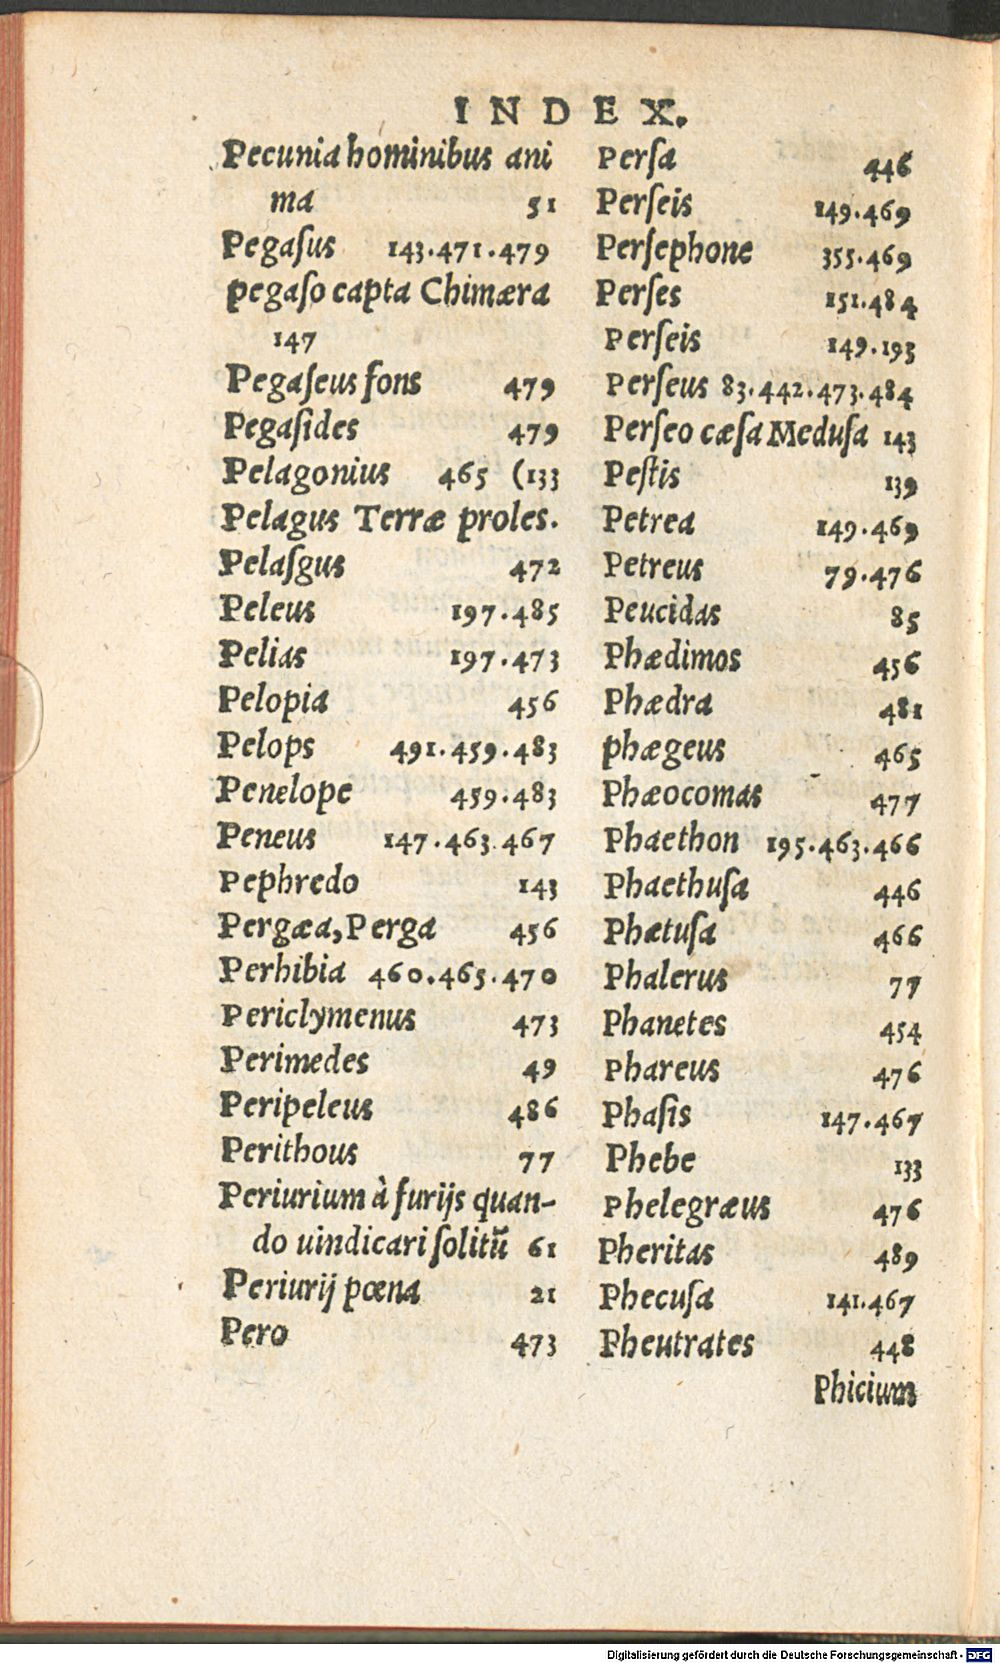 INDEX.
Pecunia hominibus ani
ma 51
Pegaſus 143.471.479
pegaſo capta Chimæra
147
Pegaſeus fons 479
Pegaſides 479
Pelagonius 465 (133
Pelagus Terræ proles.
Pelaſgus 472
Peleus 197.485
Pelias 197.473
Pelopia 456
Pelops 491.459.483
Penelope 459.483
Peneus 147.463.467
Pephredo 143
Pergæa, Perga 456
Perhibia 460.465.470
Periclymenus 473
Perimedes 49
Peripeleus 486
Perithous 77
Periurium à furijs quan-
do uindicari ſolitũ 61
Periurij pœna 21
Pero 473
Perſa 446
Perſeis 149.469
Perſephone 355.469
Perſes 151.484
Perſeis 149.193
Perſeus 83.442.473.484
Perſeo cæſa Meduſa 143
Peſtis 139
Petrea 149.469
Petreus 79.476
Peucidas 85
Phædimos 456
Phædra 481
phægeus 465
Phæocomas 477
Phaethon 195.463.466
Phaethuſa 446
Phætuſa 466
Phalerus 77
Phanetes 454
Phareus 476
Phaſis 147.467
Phebe 133
Phelegræus 476
Pheritas 489
Phecuſa 141.467
Pheutrates 448
Phicium
Digitalisierung gefördert durch die Deutsche Forschungsgemeinschaft - DFG